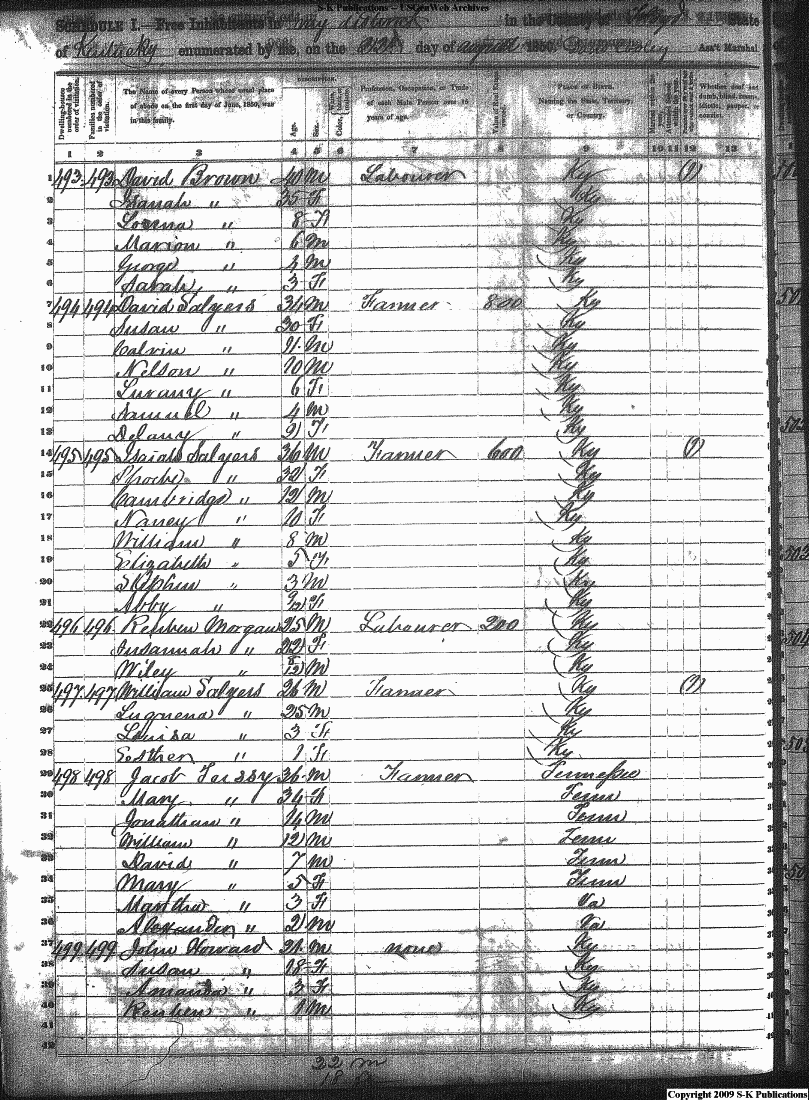 S-K Publications - USGenWeb Archives
SCHEDULE I.—Free Inhabitants in my district in the County of Floyd State
of Kentucky enumerated by me, on the day of august 1850. Ass't Marshal.
Dwelling-houses numbered in the order of visitation.
Families numbered in the order of visitation.
The Name of every Person whose usual place of abode on the first day of June, 1850, was in this family.
Age.
Sex.
Profession, Occupation, or Trade of each Male Person over 15 years of age.
Value of Real Estate owned.
Place of Birth. Naming the State, Territory, or Country.
1 2 3 4 5 6 7 8 9 10 11 12 13
1 493 493 David Brown 40 M Labourer Ky (1)
2 " 35 F Ky
3 " 8 F Ky
4 Marion " 6 M Ky
5 George " 4 M Ky
6 Sarah " 3 F Ky
7 494 494 David Salyers 34 M Farmer 800 Ky
8 Susan " 30 F Ky
9 Calvin " 11 M Ky
10 Nelson " 10 M Ky
11 Lurany " 6 F Ky
12 Samuel " 4 M Ky
13 Delany " F Ky
14 495 495 Isaiah Salyers 36 M Farmer 600 Ky (1)
15 Phoebe " 32 F Ky
16 Cambridge " 12 M Ky
17 Nancy " 10 F Ky
18 William " 8 M Ky
19 Elizabeth " 5 F Ky
20 Stephen " 3 M Ky
21 Abby " F Ky
22 496 496 Reuben Morgan 25 M Labourer 200 Ky
23 Susannah " 22 F Ky
24 Wiley " M Ky
25 497 497 William Salyers 26 M Farmer Ky (1)
26 " 25 M Ky
27 Louisa " 3 F Ky
28 Esther " 1 F Ky
29 498 498 Jacob 36 M Farmer Tennessee
30 Mary " 34 F Tenn
31 Jonathan " 14 M Tenn
32 William " 12 M Tenn
33 David " 7 M Tenn
34 Mary " 5 F Tenn
35 Martha " 3 F Va
36 Alexander " 2 M Va
37 499 499 John Howard 21 M none Ky
38 Susan " 18 F Ky
39 Amanda " 3 F Ky
40 Reuben " 1 M Ky
41
42
22 m
18
Copyright 2009 S-K Publications